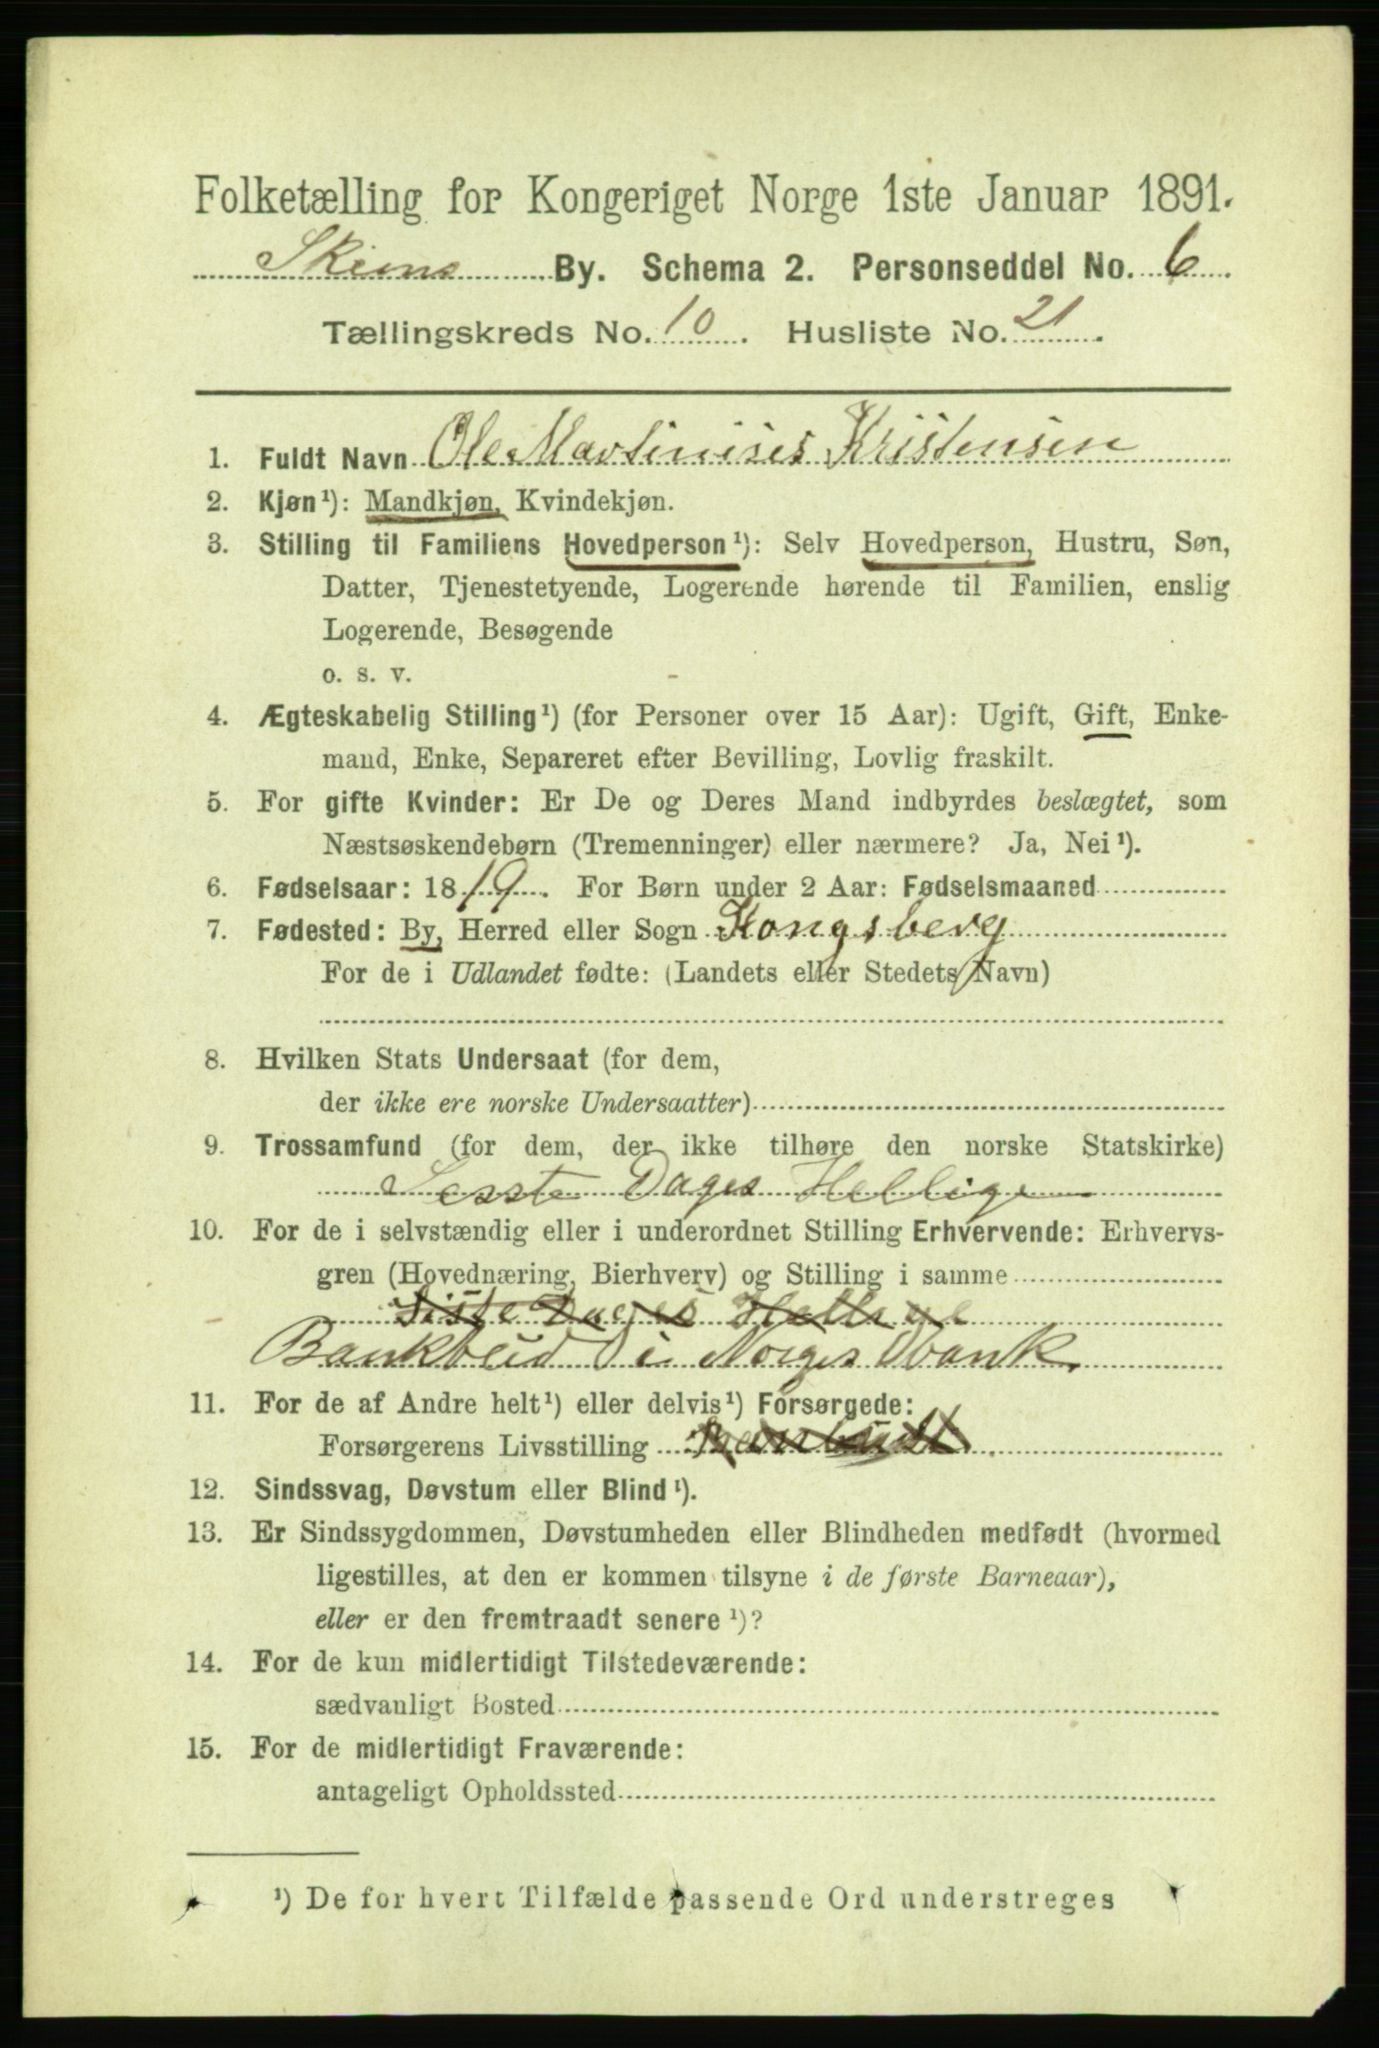 Folketælling for Kongeriget Norge 1ste Januar 1891.
Skiens By. Schema 2. Personseddel No. 6
Tællingskreds No. 10. Husliste No. 21.
1. Fuldt Navn Ole Martinises Kristensen
2. Kjøn¹): Mandkjøn, Kvindekjøn.
3. Stilling til Familiens Hovedperson¹): Selv Hovedperson, Hustru, Søn,
Datter, Tjenestetyende, Logerende hørende til Familien, enslig
Logerende, Besøgende
o. s. v.
4. Ægteskabelig Stilling¹) (for Personer over 15 Aar): Ugift, Gift, Enke-
mand, Enke, Separeret efter Bevilling, Lovlig fraskilt.
5. For gifte Kvinder: Er De og Deres Mand indbyrdes beslægtet, som
Næstsøskendebørn (Tremenninger) eller nærmere? Ja, Nei¹).
6. Fødselsaar: 1819. For Børn under 2 Aar: Fødselsmaaned
7. Fødested: By, Herred eller Sogn Kongsberg
For de i Udlandet fødte: (Landets eller Stedets Navn)
8. Hvilken Stats Undersaat (for dem,
der ikke ere norske Undersaatter)
9. Trossamfund (for dem, der ikke tilhøre den norske Statskirke)
Sesste Dages Hellige
10. For de i selvstændig eller i underordnet Stilling Erhvervende: Erhvervs-
gren (Hovednæring, Bierhverv) og Stilling i samme
Siste Dages Hellige
Bankbud i Norges bank.
11. For de af Andre helt¹) eller delvis¹) Forsørgede:
Forsørgerens Livsstilling
12. Sindssvag, Døvstum eller Blind¹).
13. Er Sindssygdommen, Døvstumheden eller Blindheden medfødt (hvormed
ligestilles, at den er kommen tilsyne i de første Barneaar),
eller er den fremtraadt senere¹)?
14. For de kun midlertidigt Tilstedeværende:
sædvanligt Bosted
15. For de midlertidigt Fraværende:
antageligt Opholdssted
¹) De for hvert Tilfælde passende Ord understreges